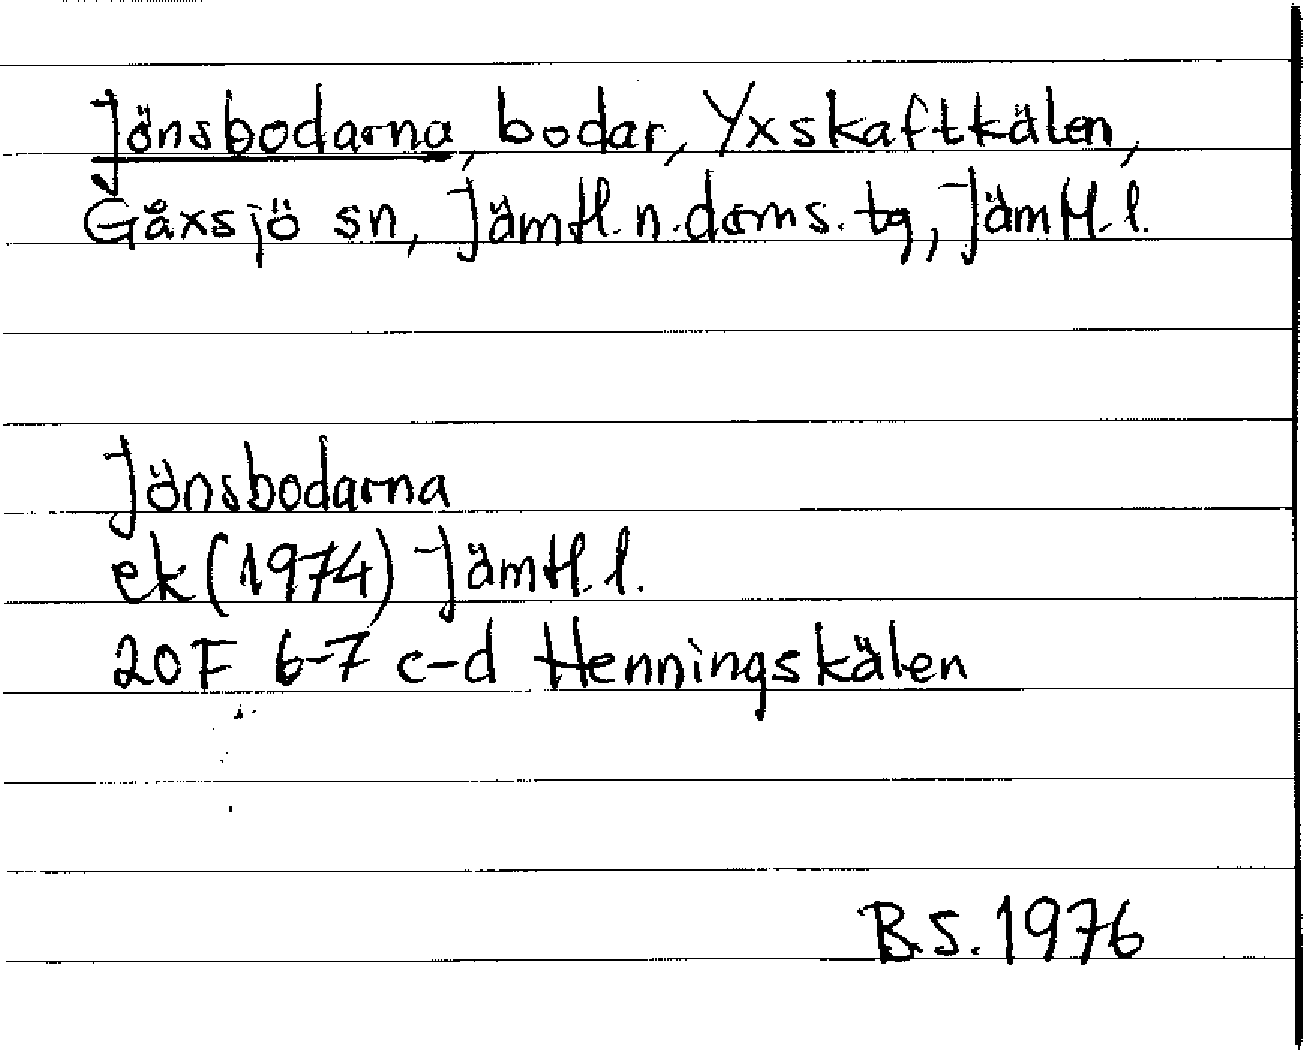 Jönsbodarna, bodar, Yxskaftkälen,
Gåxsjö sn, Jämtl. n. doms. tg, Jämtl. l.
Jönsbodarna
ek (1974) Jämtl. l.
20F 6-7 c-d Henningskälen
B.S. 1976